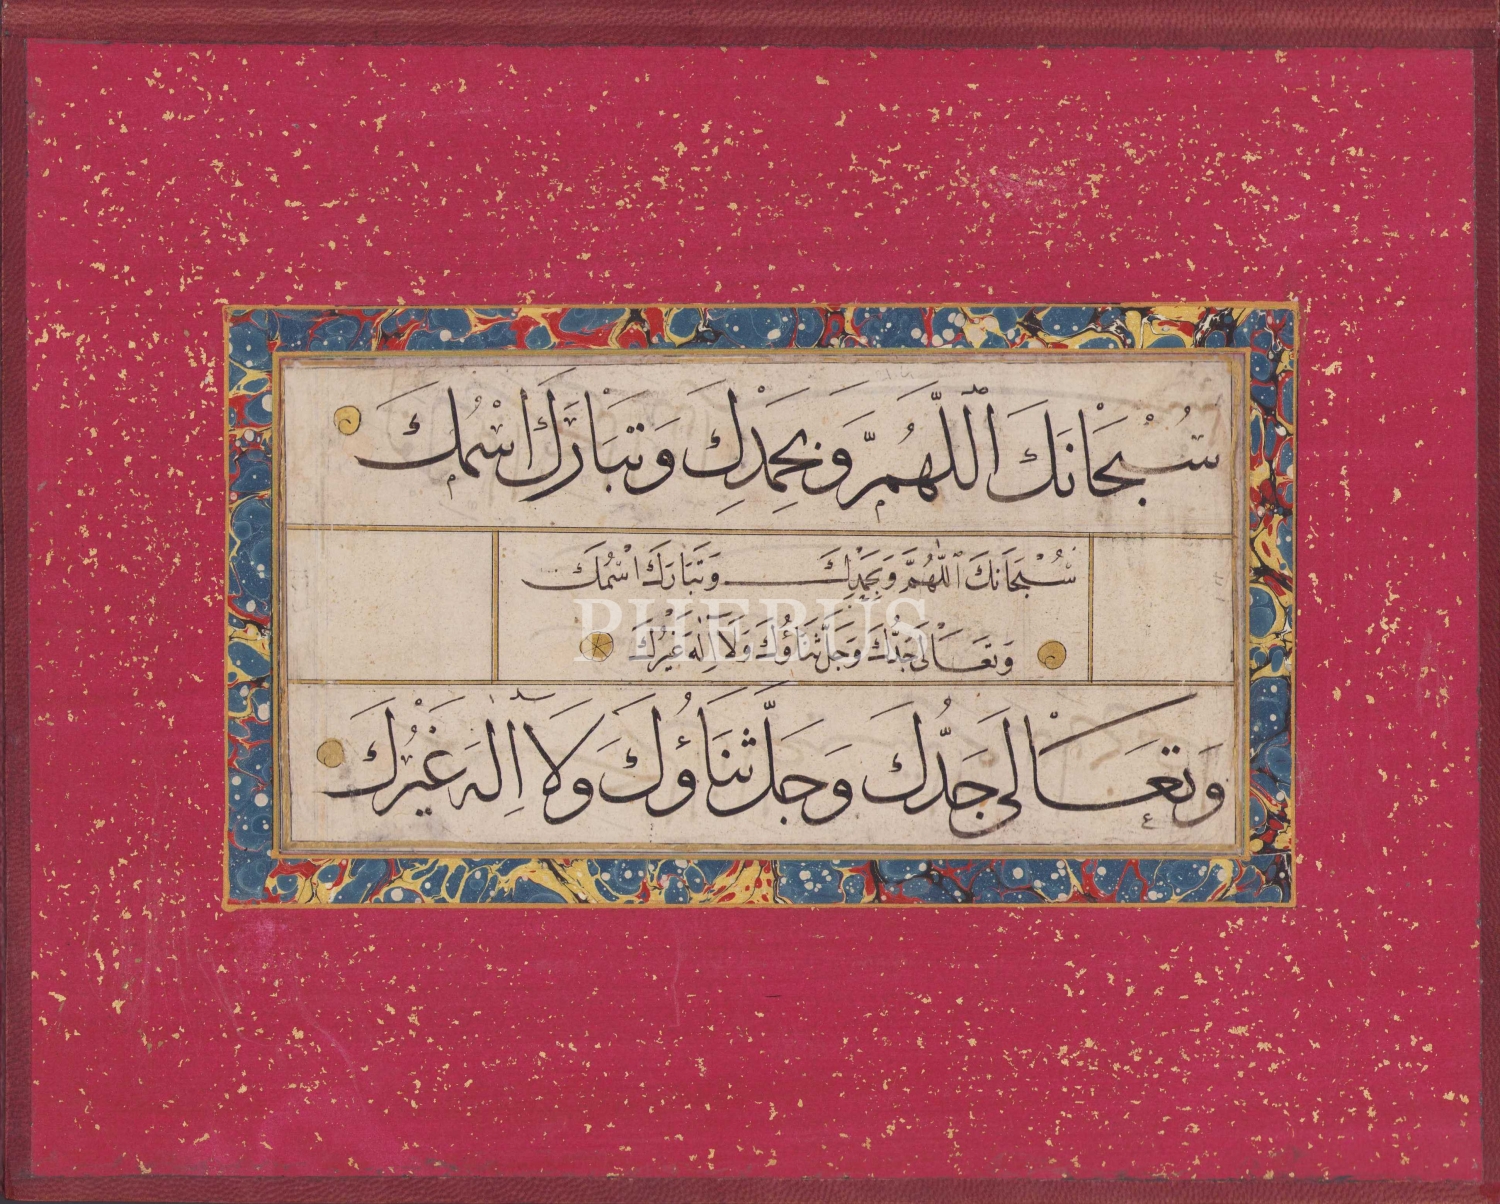 سُبْحَانَكَ اللَّهُمَّ وَبِحَمْدِكَ وَتَبَارَكَ اسْمُكَ
سُبْحَانَكَ اللَّهُمَّ وَبِحَمْدِكَ وَتَبَارَكَ اسْمُكَ
PHEBUS
وَتَعَالَى جَدُّكَ وَجَلَّ ثَنَاؤُكَ وَلَا اِلَهَ غَيْرُكَ
وَتَعَالَى جَدُّكَ وَجَلَّ ثَنَاؤُكَ وَلَا اِلَهَ غَيْرُكَ